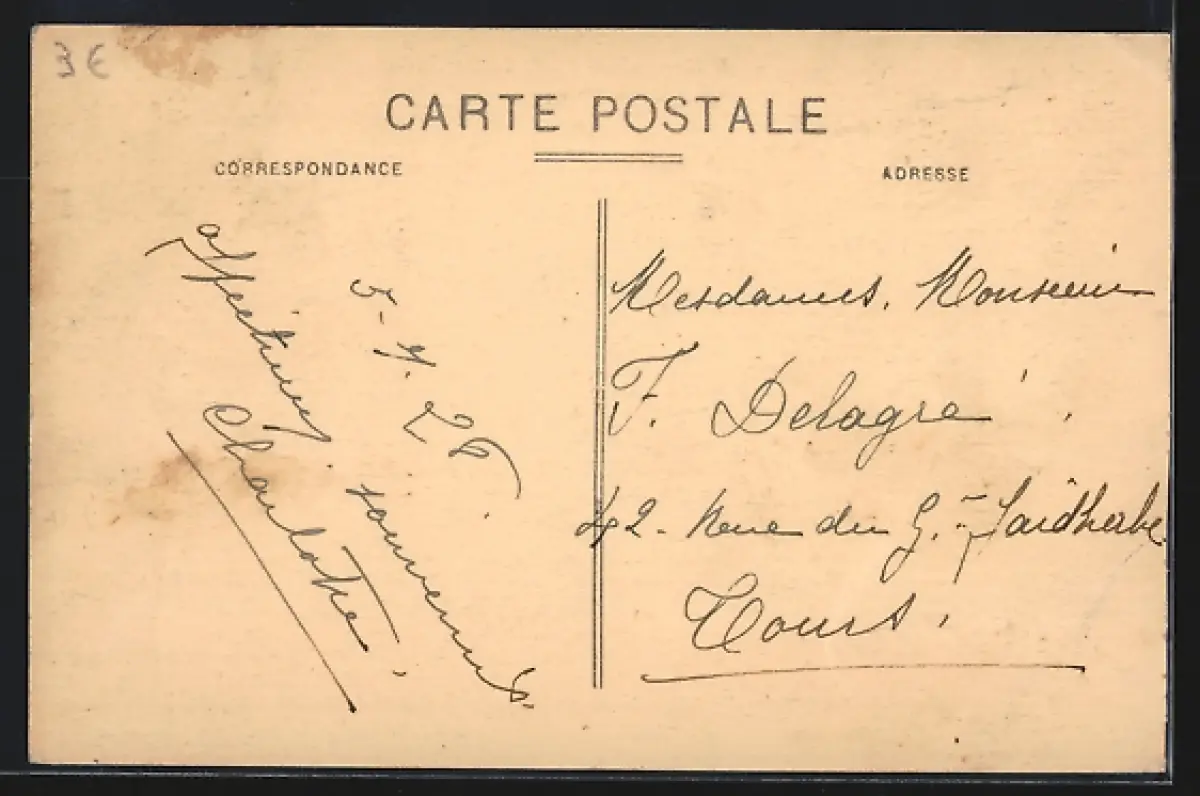 3 €
CARTE POSTALE
CORRESPONDANCE
ADRESSE
5-7.28
affectueux souvenirs
Charlotte.
Mesdames, Monsieur
F. Delagre
42 - Rue du G. Faidherbe
Tours.